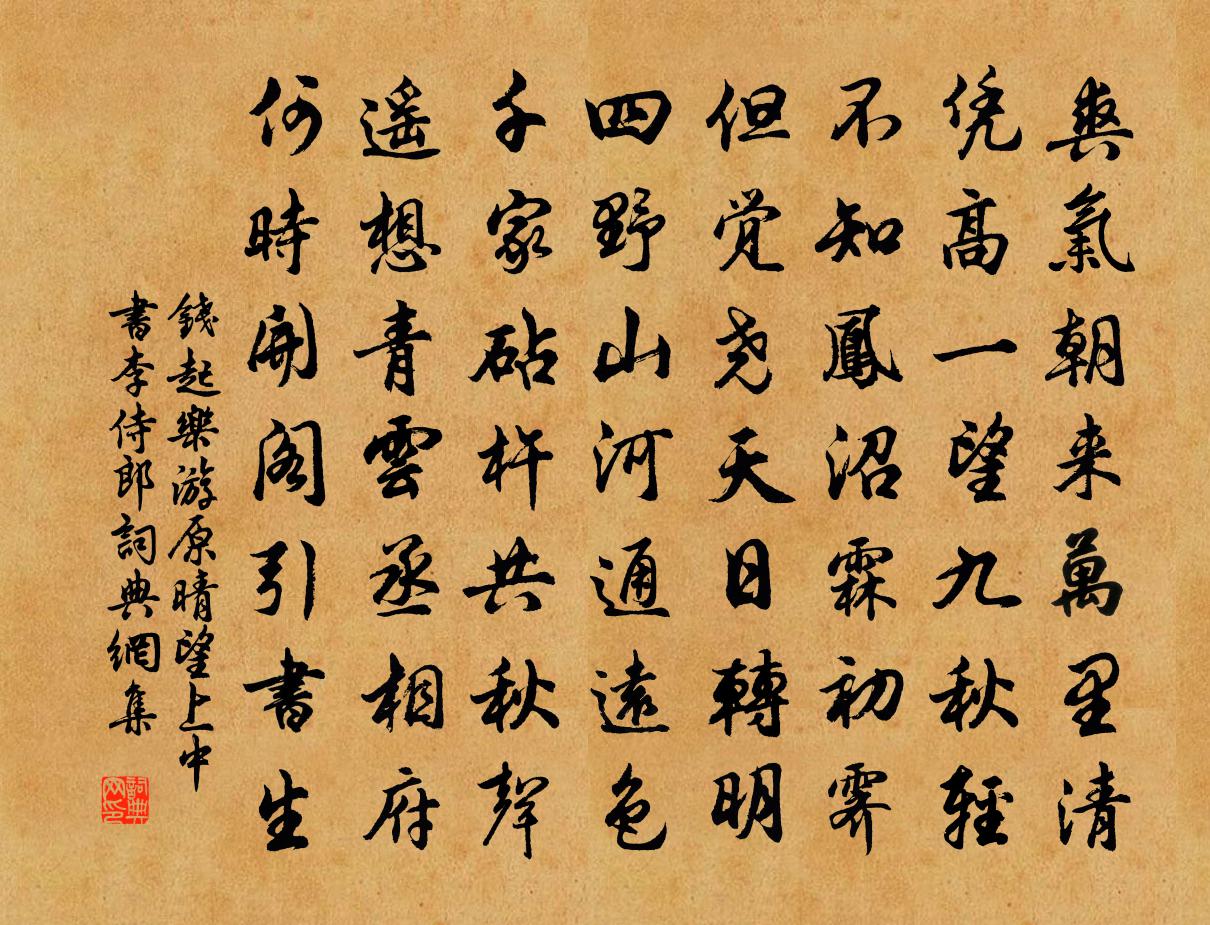 爽氣朝来萬里清
凭高一望九秋輕
不知鳳沼霖初霽
但觉尧天日轉明
四野山河通遠色
千家砧杵共秋聲
遥想青雲丞相府
何時開閣引書生
錢起樂游原晴望上中
書李侍郎詞典網集
詞典
网印